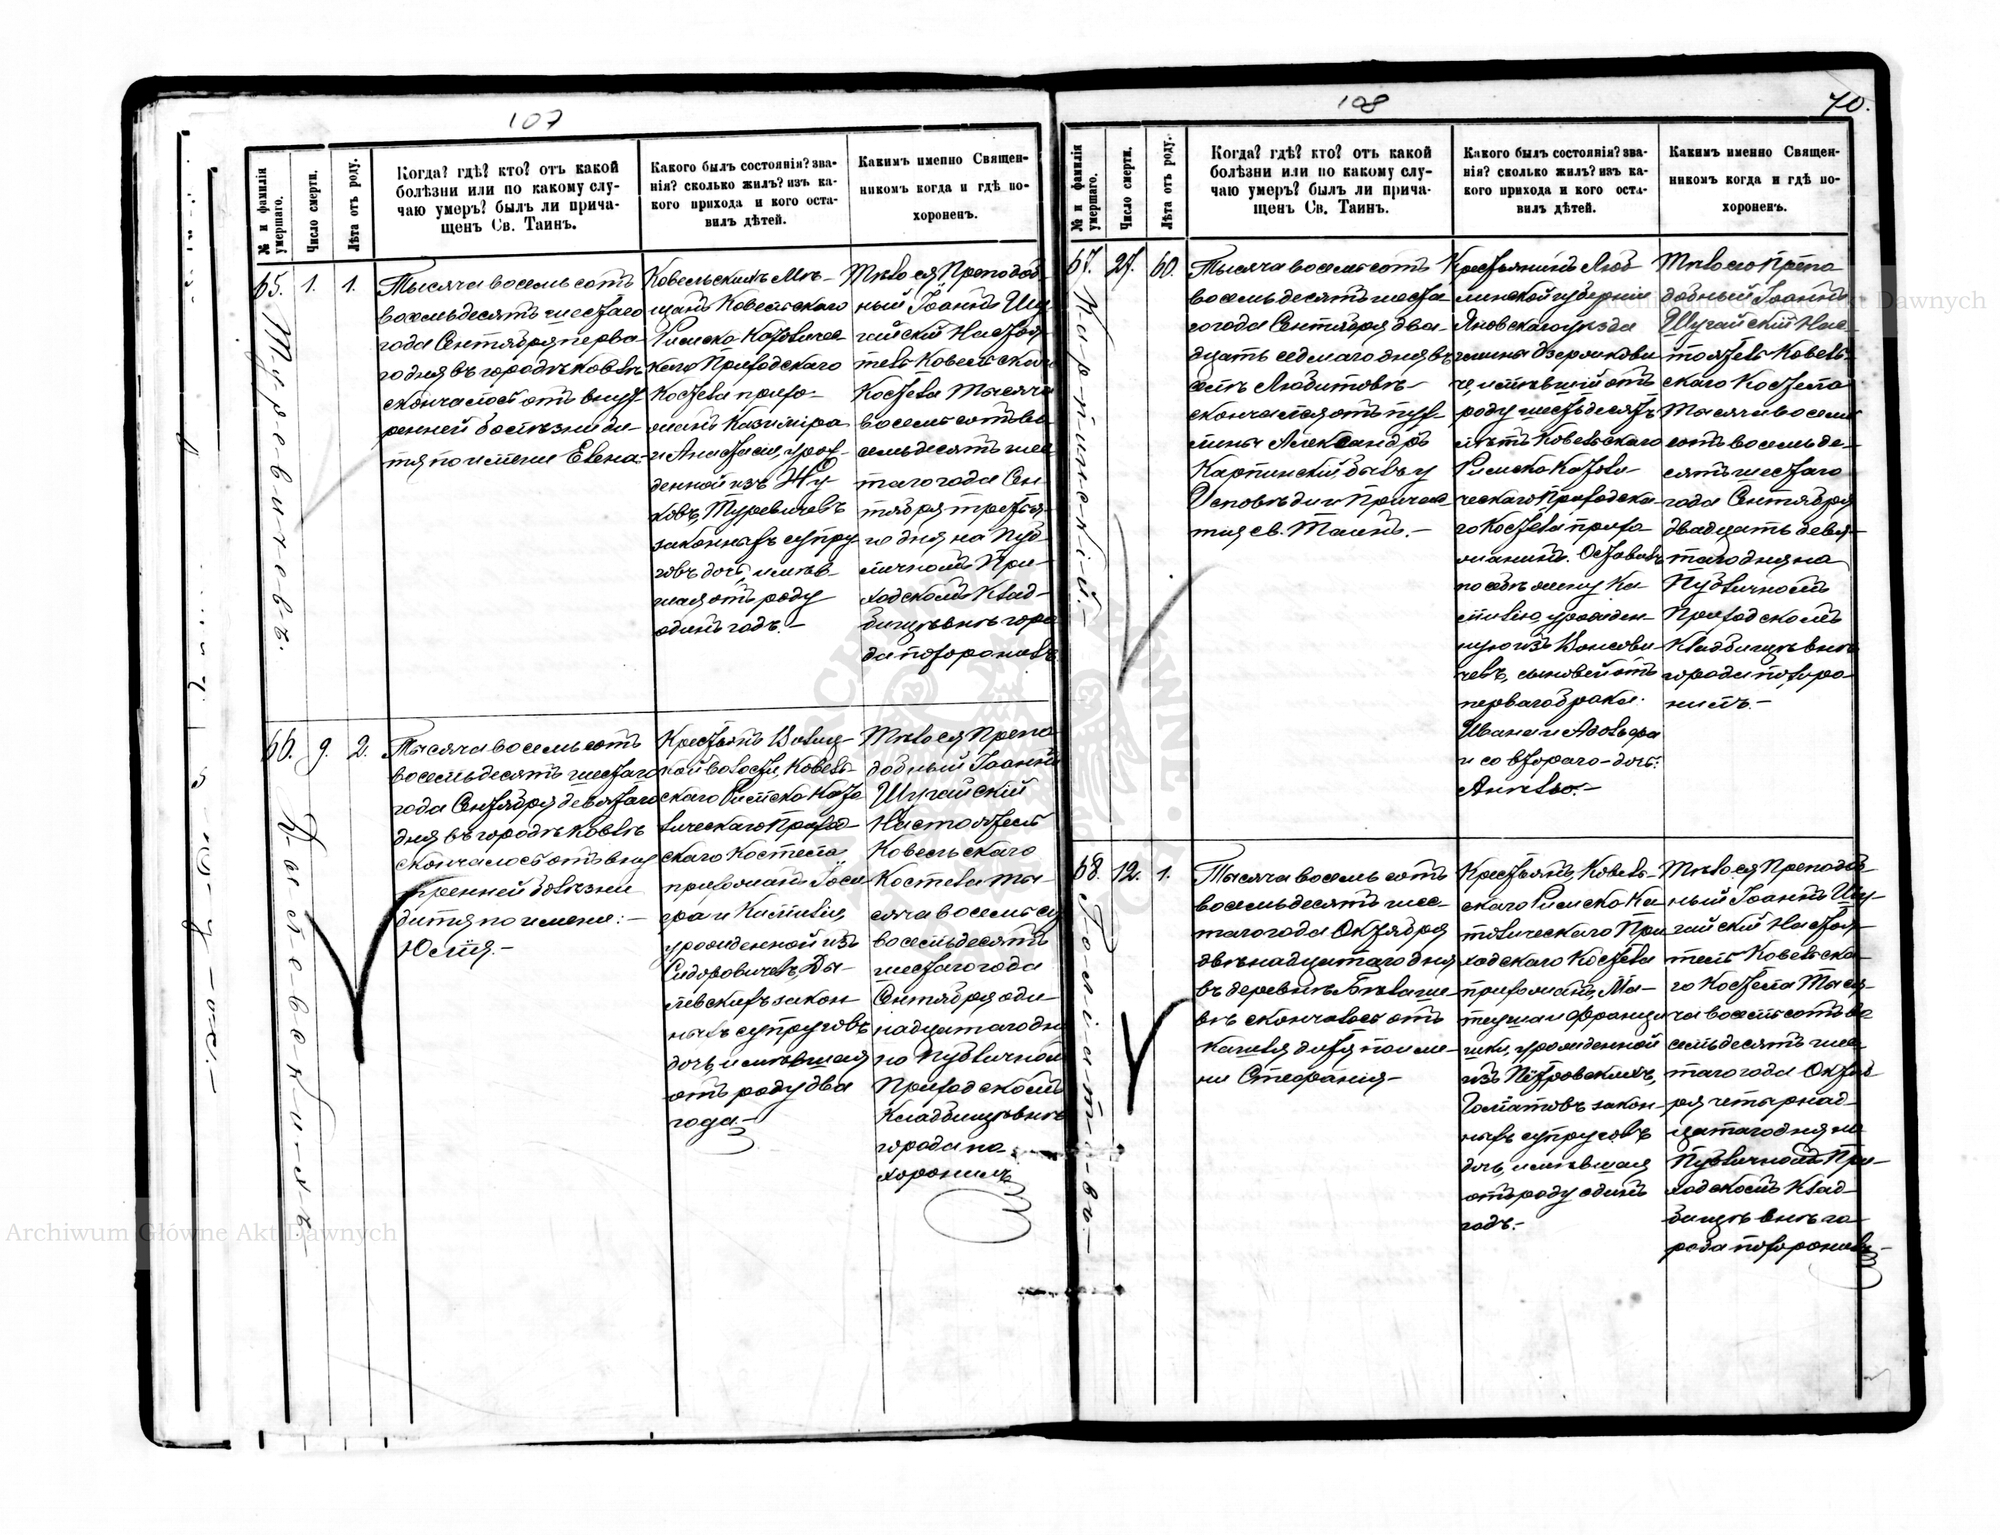 107
№ и фамилія умершаго.
Число смерти.
Лѣта отъ роду.
Когда? гдѣ? кто? отъ какой
болѣзни или по какому слу-
чаю умеръ? былъ ли прича-
щенъ Св. Таинъ.
Какого былъ состоянія? зва-
нія? сколько жилъ? изъ ка-
кого прихода и кого оста-
вилъ дѣтей.
Какимъ именно Священ-
никомъ когда и гдѣ по-
хороненъ.
65.
Туревичевъ.
1.
1.
Тысяча восемь сотъ
восемьдесятъ шестаго
года Сентября перва-
го дня въ городѣ Ковлѣ
скончалось отъ внут-
ренней болѣзни ди-
тя по имени Елена.
Ковельскихъ Мѣ-
щанъ Ковельскаго
Римско-Католичес-
каго Приходскаго
Костела прихо-
жанъ Казимира
и Анастасіи, урож-
денной изъ Жу
ковъ, Туревичевъ
законныхъ супру
говъ дочь, имѣв-
шая отъ роду
одинъ годъ.-
Тѣло ея Преподоб-
ный Іоаннъ Шу-
гайскій Настоя-
тель Ковельскаго
Костела Тысяча
восемь сотъ во
семьдесятъ шес
таго года Сен-
тября третья-
го дня на Пуб-
личномъ При-
ходскомъ Клад-
бищѣ внѣ горо
да похоронилъ
66.
9.
2.
Тысяча восемь сотъ
восемьдесятъ шестаго
года Сентября девятаго
дня въ городѣ Ковлѣ
скончалось отъ вну
тренней болѣзни
дитя по имени:-
Юлія.-
Крестьянъ
кой волости, Ковель-
скаго Римско Като
лическаго Приход-
скаго Костела
прихожанъ
и
урожденной изъ
Сидоровичевъ,
закон
ныхъ супруговъ
дочь, имѣвшая
отъ роду два
года.-
Тѣло ея Препо
добный Іоаннъ
Шугайскій
Настоятель
Ковельскаго
Костела ты-
сяча восемь со
восемьдесятъ
шестаго года
Сентября оди-
надцатаго дня
на Публичномъ
Приходскомъ
Кладбищѣ внѣ
города по
хоронилъ.
108
70.
№ и фамилія умершаго.
Число смерти.
Лѣта отъ роду.
Когда? гдѣ? кто? отъ какой
болѣзни или по какому слу-
чаю умеръ? былъ ли прича-
щенъ Св. Таинъ.
Какого былъ состоянія? зва-
нія? сколько жилъ? изъ ка-
кого прихода и кого оста-
вилъ дѣтей.
Какимъ именно Священ-
никомъ когда и гдѣ по-
хороненъ.
67.
Карпинскій.-
27.
60.
Тысяча восемь сотъ
восемьдесятъ шеста
го года Сентября два
дцать седмаго дня въ
селѣ Любитовѣ
скончался отъ пух
лины Александръ
Карпинскій, бывъ у
Исповѣди и Причас
тія св. Таинъ.-
Крестьянинъ Люб
линской губерніи
Яновскаго уѣзда
гмины
имѣвшій отъ
роду шестьдесятъ
лѣтъ Ковельскаго
Римско Католи
ческаго Приходска-
го Костела прихо
жанинъ. Оставилъ
по себѣ жену Ка
милію, урожден-
ную изъ
сыновей отъ
перваго брака:
Ивана и Адольфа
и со втораго-дочь:
Анелю.-
Тѣло его Препо
добный Іоаннъ
Шугайскій Нас-
тоятель Ковель-
скаго Костела
Тысяча восемь
сотъ восемьде-
сятъ шестаго
года Сентября
двадцать девя-
таго дня на
Публичномъ
Приходскомъ
Кладбищѣ внѣ
города похоро
нилъ.-
68.
Гомятовъ.-
12.
1.
Тысяча восемь сотъ
восемьдесятъ шес-
таго года Октября
двѣнадцатаго дня
въ деревнѣ
скончалось отъ
кашля дитя по име-
ни Стефанія-
Крестьянъ, Ковель-
скаго Римско Ка
толическаго При
ходскаго Костела
прихожанъ, Ма-
теуша и Францы
шки, урожденной
изъ Пётровскихъ,
Гомятовъ закон-
ныхъ супруговъ
дочь, имѣвшая
отъ роду одинъ
годъ.-
Тѣло ея Преподоб-
ный Іоаннъ Шу-
гайскій Настоя-
тель Ковельска-
го Костела Тыся
ча восемь сотъ во
семьдесятъ шес
таго года Октяб
ря четырнад-
цатаго дня на
Публичномъ При-
ходскомъ Клад-
бищѣ внѣ го-
рода похоронилъ-
Archiwum Główne Akt Dawnych